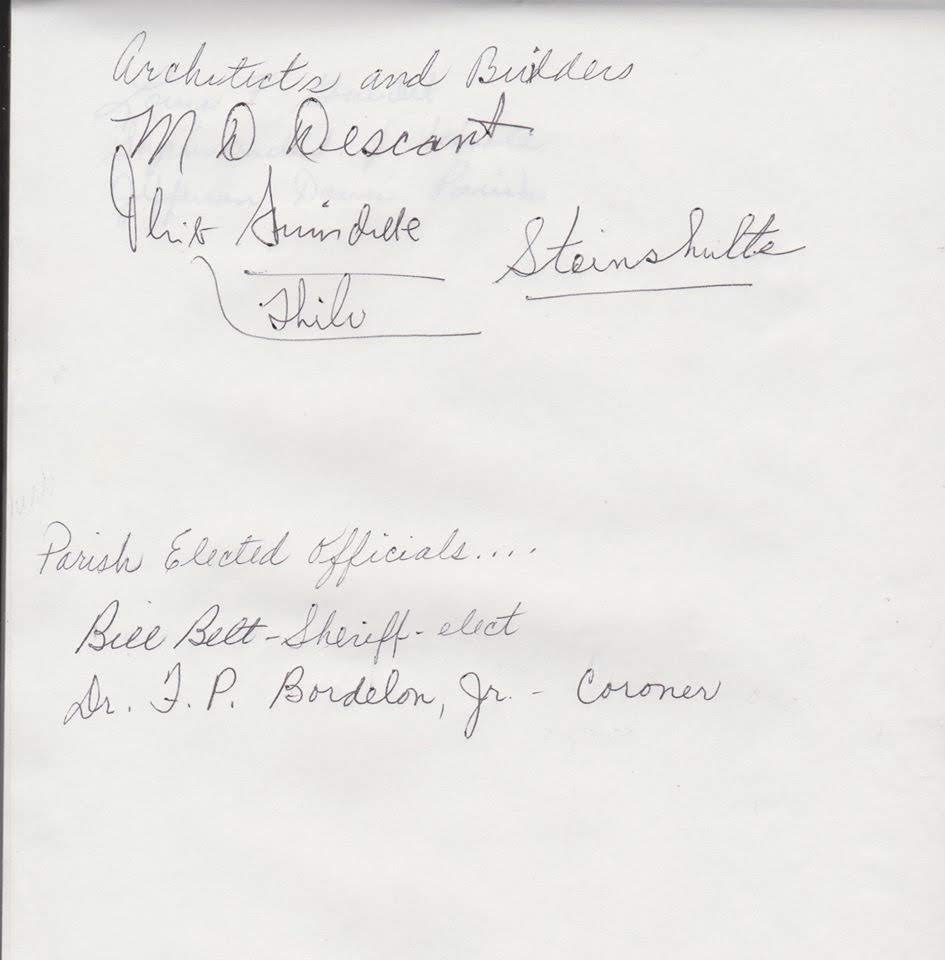 Architects and Builders
M D Descant
Steinshulte
Parish Elected Officials....
Bill Belt - Sheriff - elect
Dr. F. P. Bordelon, Jr. - Coroner